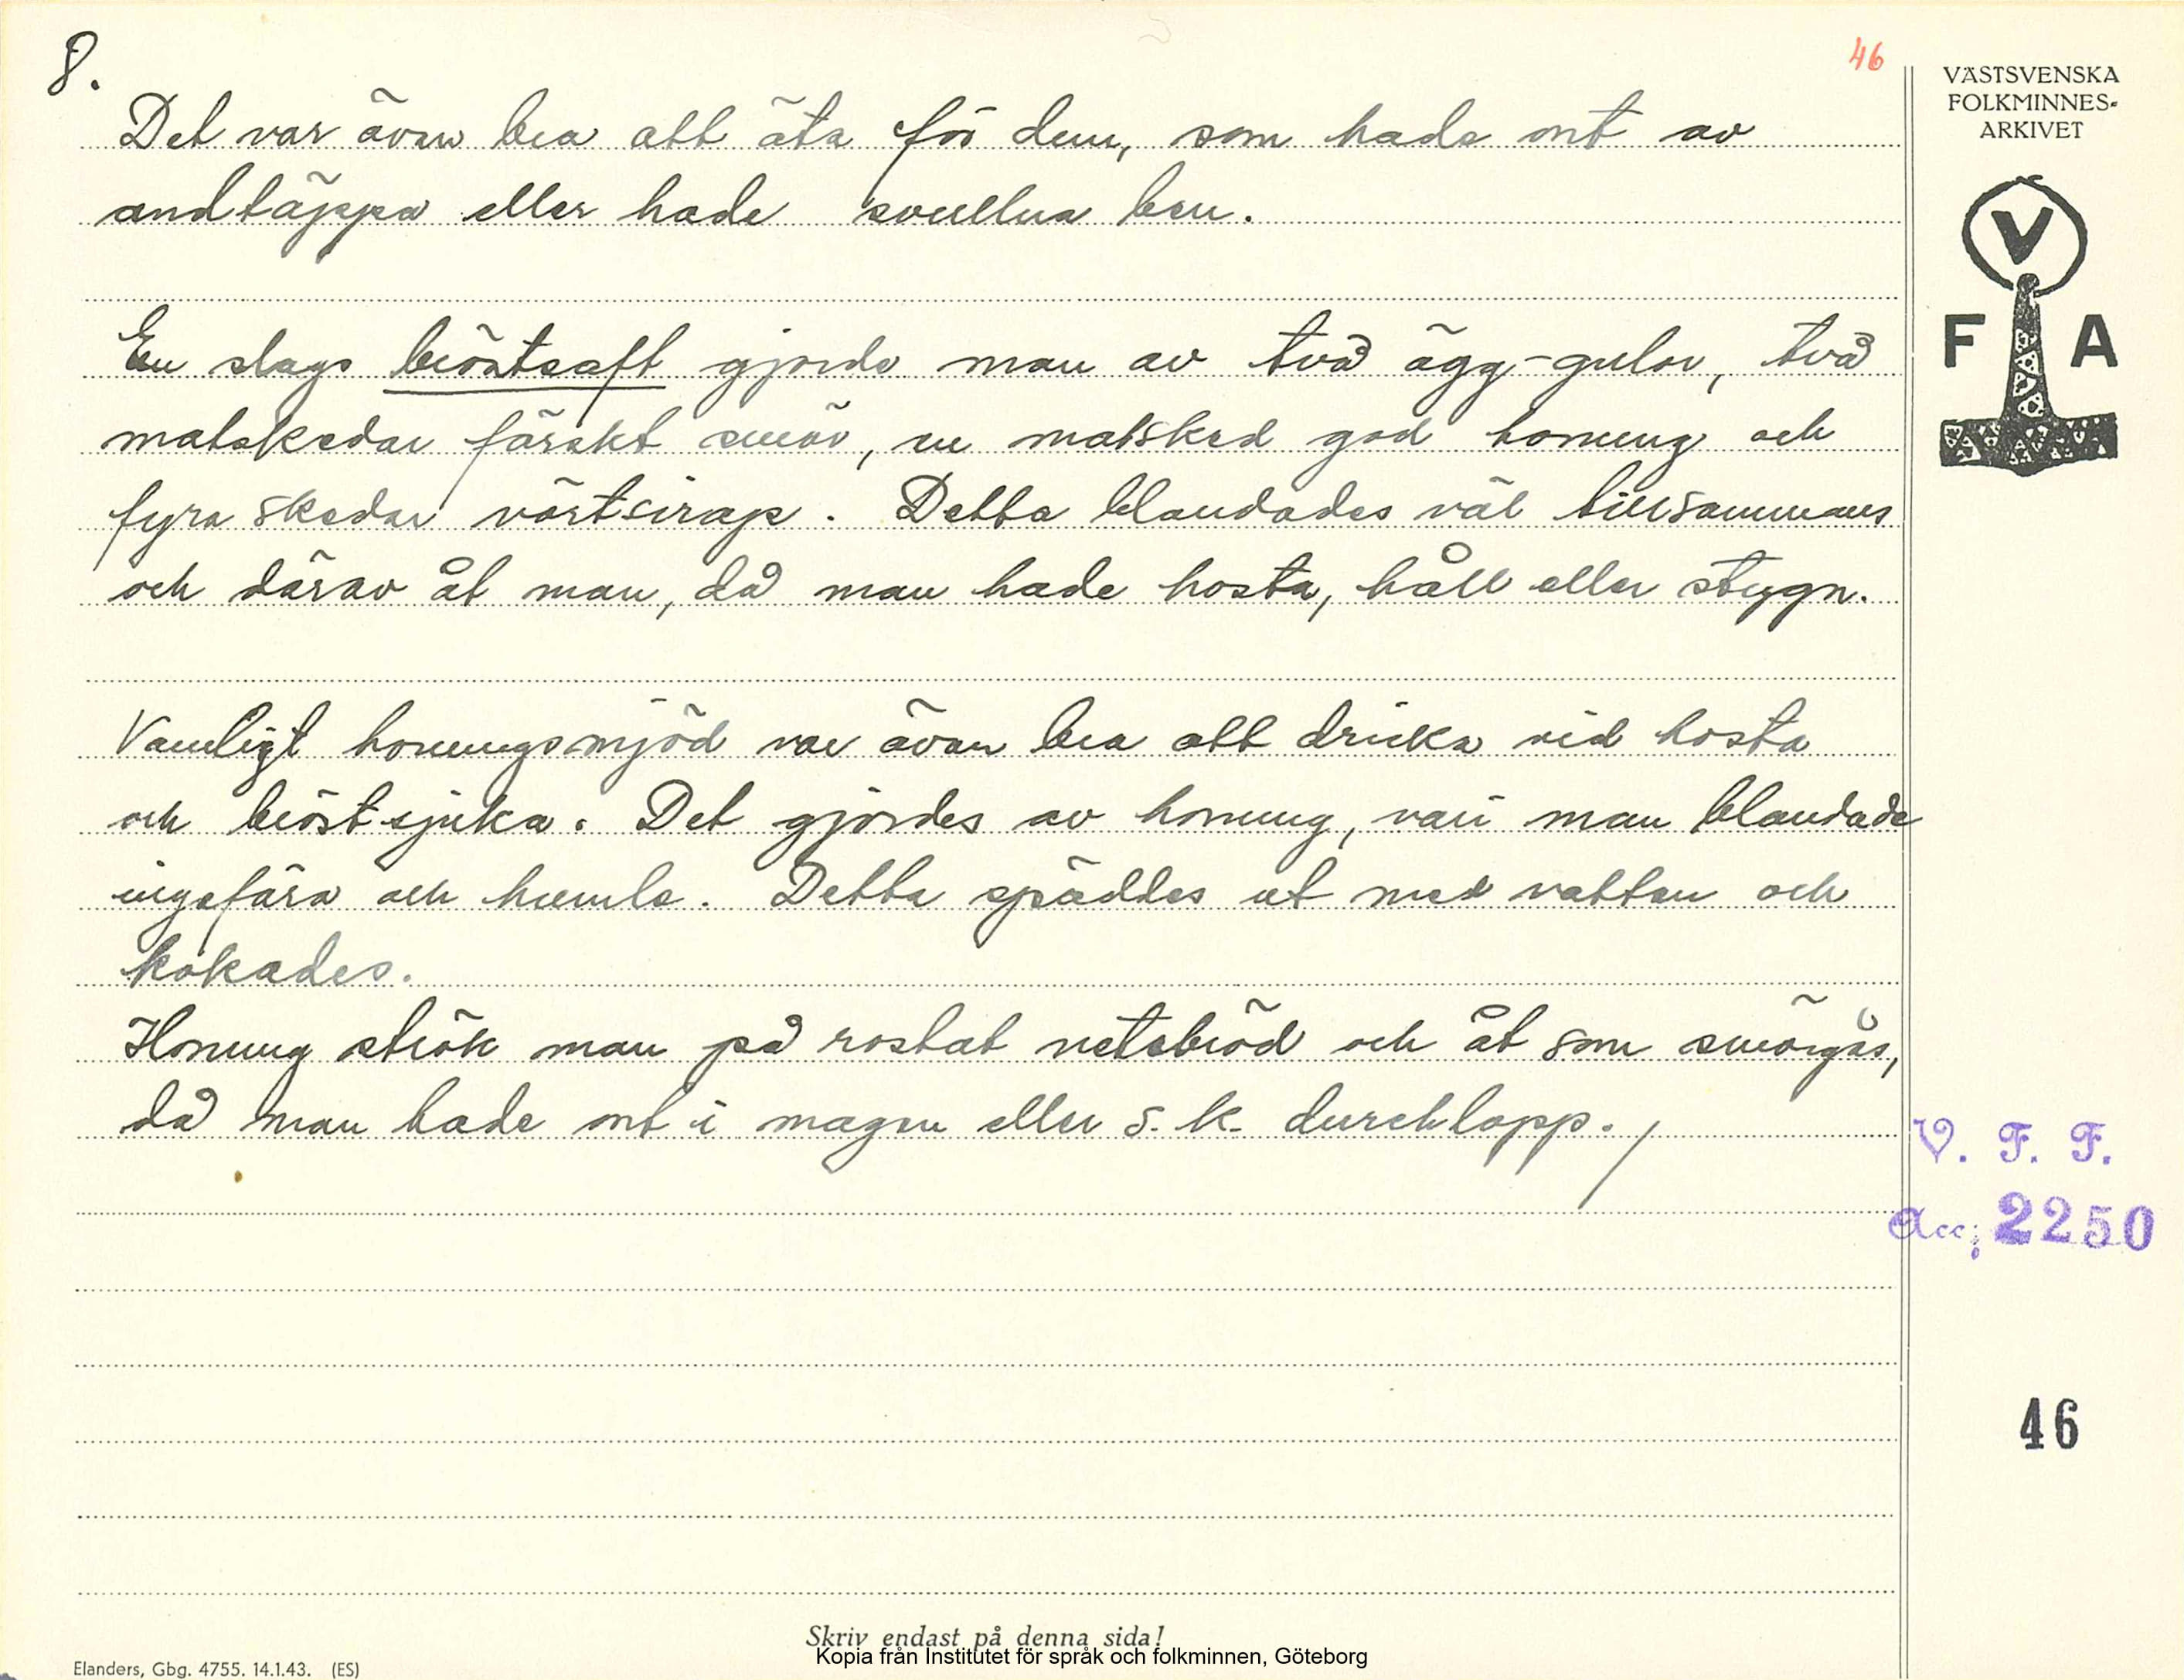 8.
46
Det var även bra att äta för dem, som hade ont av
andtäppa eller hade svullna ben.
En slags bröstsaft gjorde man av två ägg-gulor, två
matskedar färskt smör, en matsked god honung och
fyra skedar vörtsirap. Detta blandades väl tillsammans
och därav åt man, då man hade hosta, håll eller stygn.
Vanligt honungsmjöd var även bra att dricka vid hosta
och bröstsjuka. Det gjordes av honung, vari man blandade
ingefära och humle. Detta späddes ut med vatten och
kokades.
Honung strök man på rostat vetebröd och åt som smörgås,
då man hade ont i magen eller s.k. durchlopp.
VÄSTSVENSKA
FOLKMINNES-
ARKIVET
V
F A
V. F. F.
Acc; 2250
46
Skriv endast på denna sida!
Kopia från Institutet för språk och folkminnen, Göteborg
Elanders, Gbg. 4755. 14.1.43. (ES)